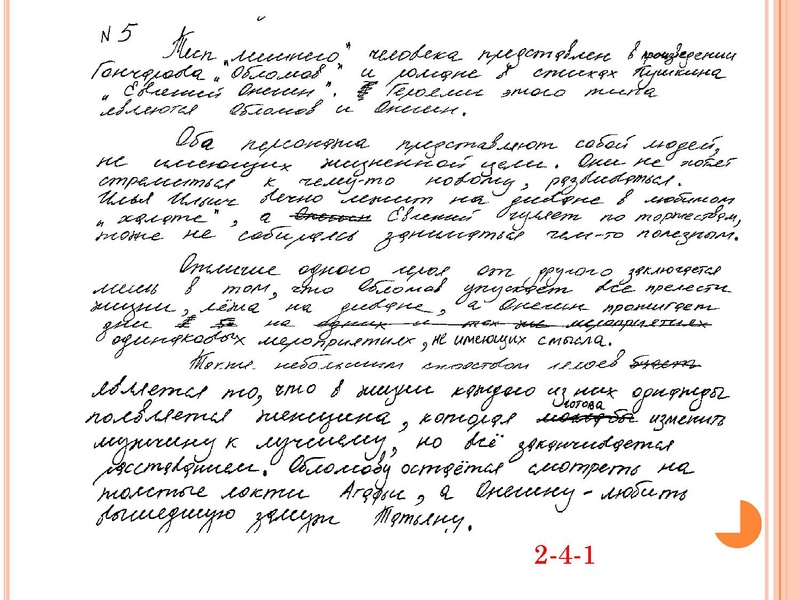 N 5 Тип „лишнего" человека представлен в произведении
Гончарова „Обломов" и романе в стихах Пушкина
„Евгений Онегин". Героями этого типа
являются Обломов и Онегин.
Оба персонажа представляют собой людей,
не имеющих жизненной цели. Они не хотят
стремиться к чему-то новому, развиваться.
Илья Ильич вечно лежит на диване в любимом
„халате", а Онегин Евгений гуляет по торжествам,
тоже не собираясь заниматься чем-то полезным.
Отличие одного героя от другого заключается
лишь в том, что Обломов упускает все прелести
жизни, лёжа на диване, а Онегин прожигает
дни на одних и тех же мероприятиях
одинаковых мероприятиях, не имеющих смысла.
Также небольшим сходством героев
является то, что в жизни каждого из них однажды
появляется женщина, которая готова изменить
мужчину к лучшему, но всё заканчивается
расставанием. Обломову остаётся смотреть на
толстые локти Агафьи, а Онегину - любить
вышедшую замуж Татьяну.
2-4-1